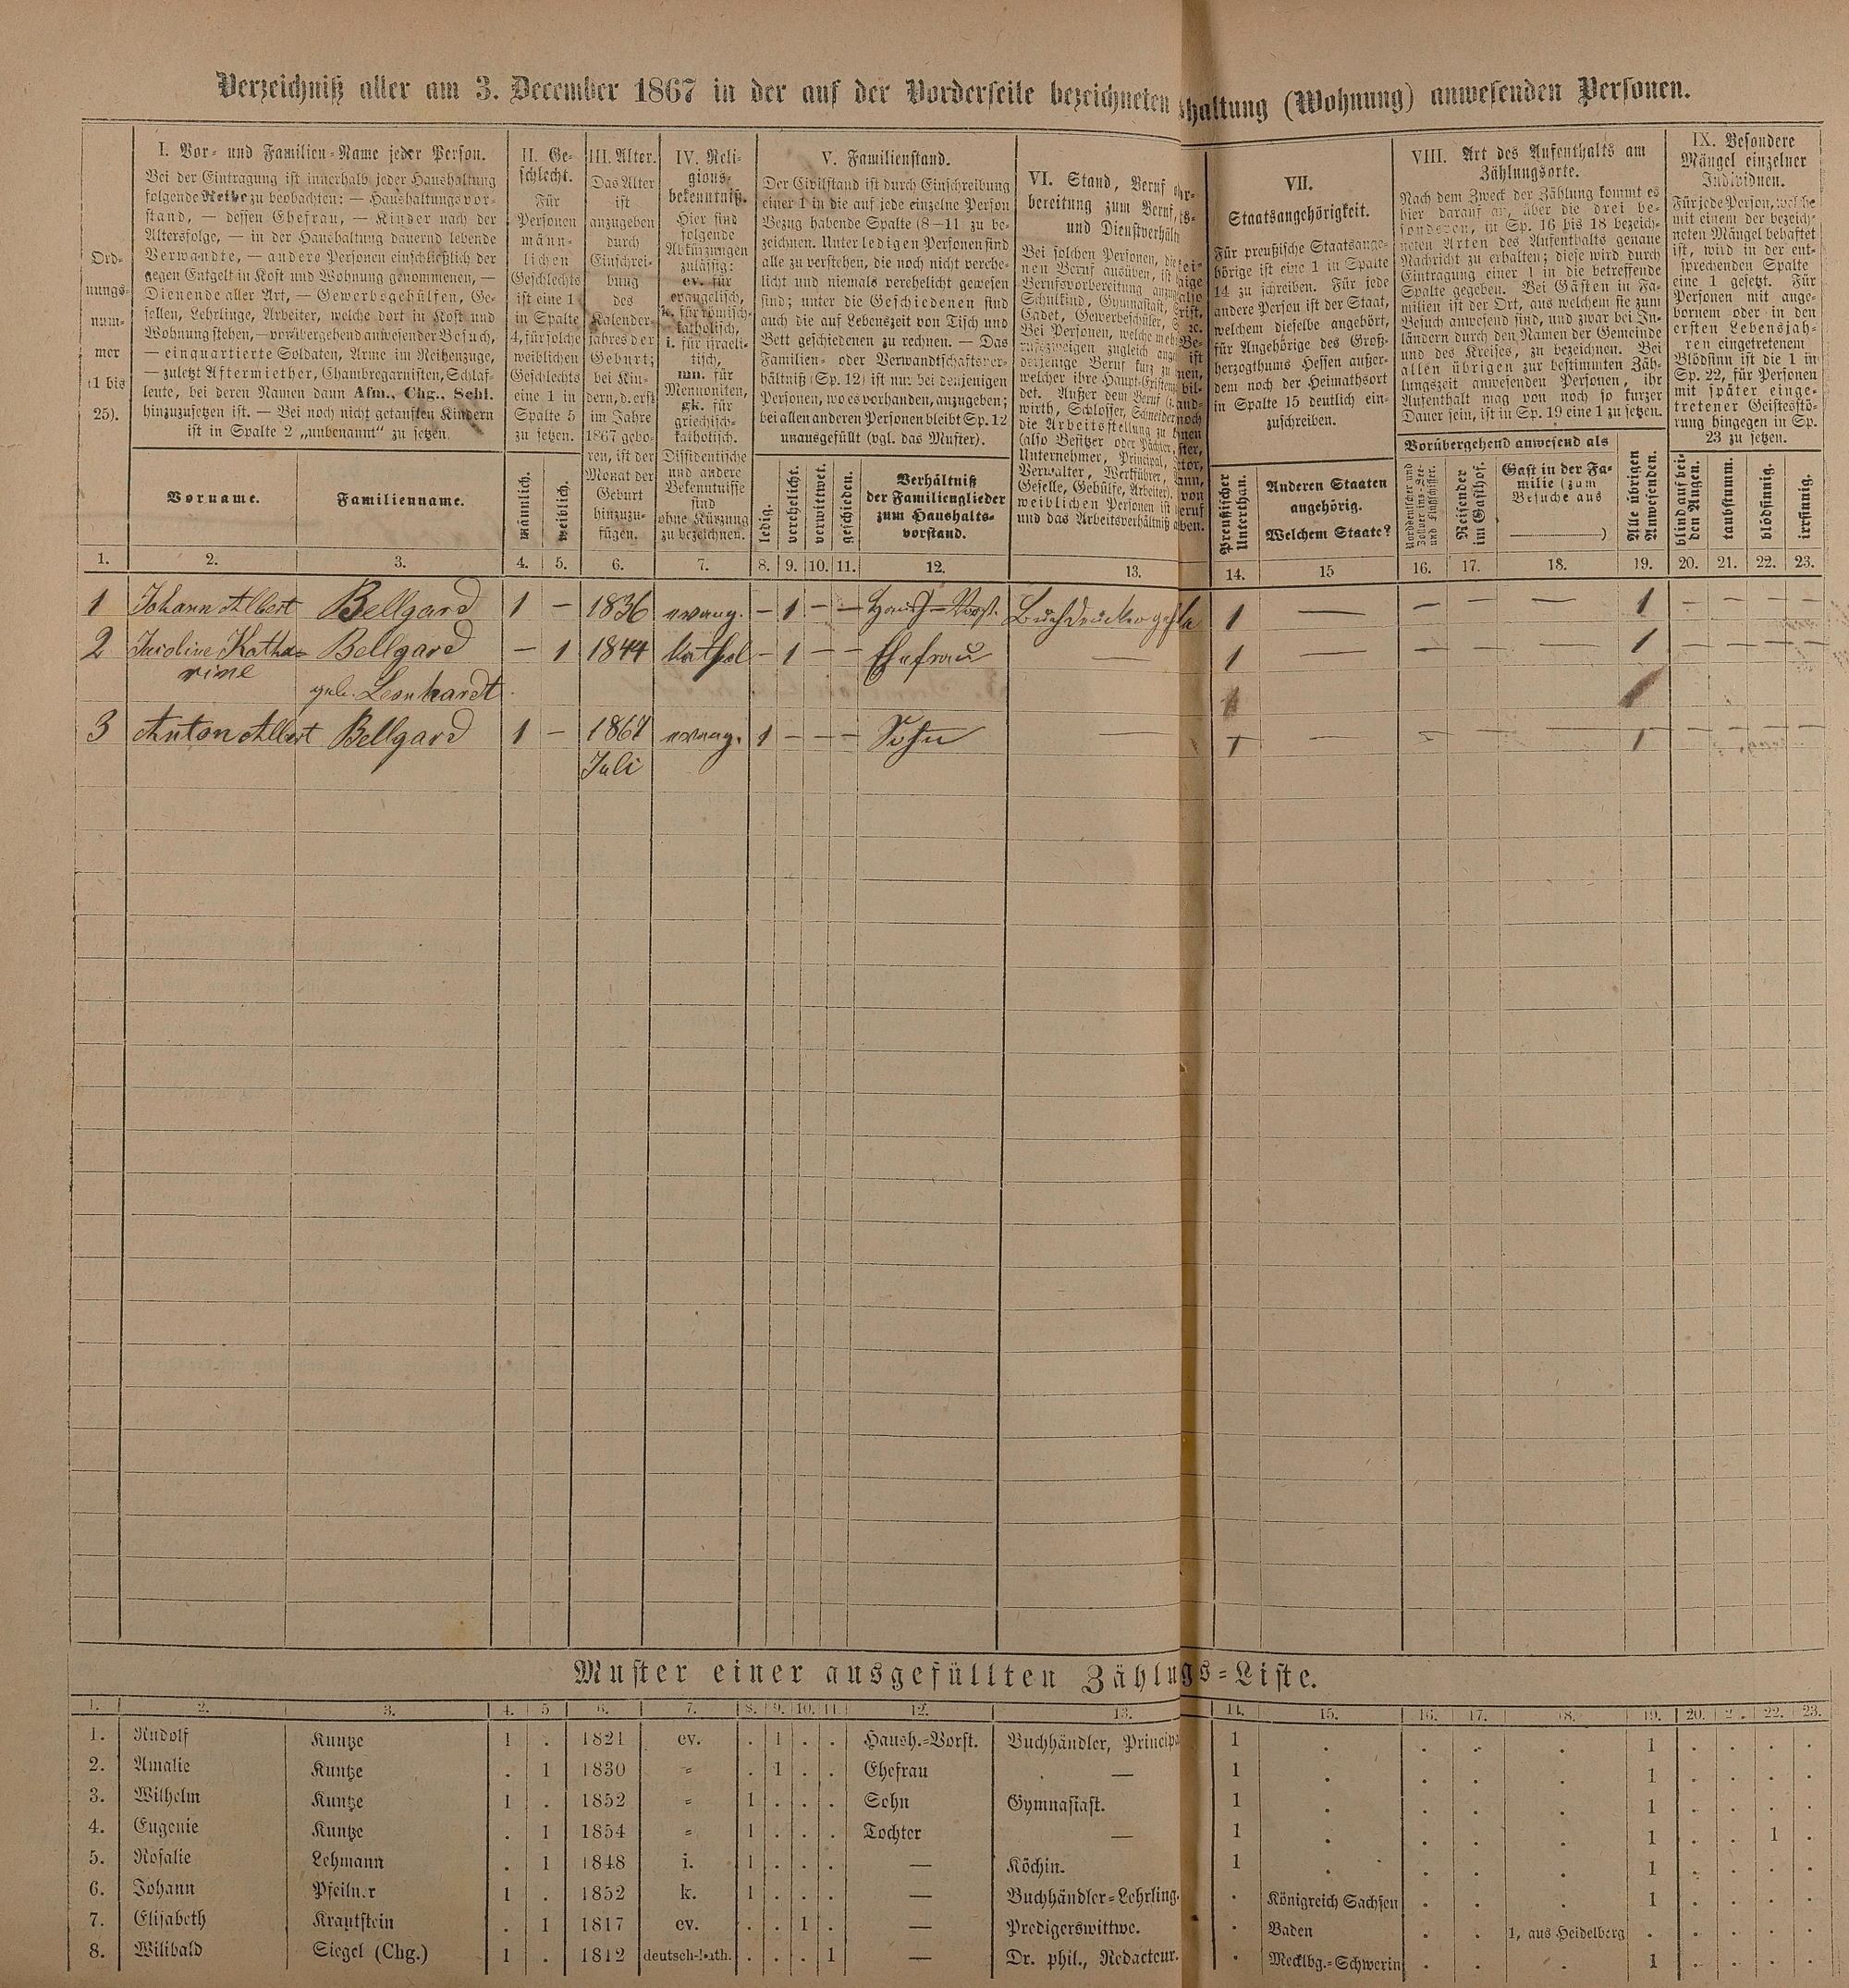 Verzeichniß aller am 3. December 1867 in der auf der Vorderseite bezeichneten shaltung (Wohnung) anwesenden Personen.
Ord-
nungs-
num-
mer
(1 bis
25).
I. Vor- und Familien-Name jeder Person.
Bei der Eintragung ist innerhalb jeder Haushaltung
folgende Reihe zu beobachten: — Haushaltungsvor-
stand, — dessen Ehefrau, — Kinder nach der
Altersfolge, — in der Haushaltung dauernd lebende
Verwandte, — andere Personen einschließlich der
gegen Entgelt in Kost und Wohnung genommenen, —
Dienende aller Art, — Gewerbsgehülfen, Ge-
sellen, Lehrlinge, Arbeiter, welche dort in Kost und
Wohnung stehen, — vorübergehend anwesender Besuch,
— einquartierte Soldaten, Arme im Reihenzuge,
— zuletzt Aftermiether, Chambregarnisten, Schlaf-
leute, bei deren Namen dann Afm., Chg., Schl.
hinzuzusetzen ist. — Bei noch nicht getauften Kindern
ist in Spalte 2 „unbenannt“ zu setzen.
Vorname.
Familienname.
II. Ge-
schlecht.
Für
Personen
männ-
lichen
Geschlechts
ist eine 1
in Spalte
4, für solche
weiblichen
Geschlechts
eine 1 in
Spalte 5
zu setzen.
männlich.
weiblich.
III. Alter.
Das Alter
ist
anzugeben
durch
Einschrei-
bung
des
Kalender-
jahres der
Geburt;
bei Kin-
dern, d. erst
im Jahre
1867 gebo-
ren, ist der
Monat der
Geburt
hinzuzu-
fügen.
IV. Reli-
gions-
bekenntniß.
Hier sind
folgende
Abkürzungen
zulässig:
ev. für
evangelisch,
k. für römisch-
katholisch,
i. für israeli-
tisch,
mn. für
Mennoniten,
gk. für
griechisch-
katholisch.
Dissidentische
und andere
Bekenntnisse
sind
ohne Kürzung
zu bezeichnen.
V. Familienstand.
Der Civilstand ist durch Einschreibung
einer 1 in die auf jede einzelne Person
Bezug habende Spalte (8—11) zu be-
zeichnen. Unter ledigen Personen sind
alle zu verstehen, die noch nicht verehe-
licht und niemals verehelicht gewesen
sind; unter die Geschiedenen sind
auch die auf Lebenszeit von Tisch und
Bett geschiedenen zu rechnen. — Das
Familien- oder Verwandtschaftsver-
hältniß (Sp. 12) ist nur bei denjenigen
Personen, wo es vorhanden, anzugeben;
bei allen anderen Personen bleibt Sp. 12
unausgefüllt (vgl. das Muster).
ledig.
verehelicht.
verwittwet.
geschieden.
Verhältniß
der Familienglieder
zum Haushalts-
vorstand.
VI. Stand, Beruf
bereitung zum Beruf,
und Dienstverhält
Bei solchen Personen, die
nen Beruf ausüben, ist
Berufsvorbereitung
Schulkind, Gymnasiast,
Cadet, Gewerbeschüler,
Bei Personen, welche
rufszweigen zugleich
derjenige Beruf kurz zu
welcher ihre Haupt-Existenz
det. Außer dem Beruf
wirth, Schlosser, Schneider
die Arbeitsstellung zu
(also Besitzer oder Pächter,
Unternehmer, Principal,
Verwalter, Werkführer,
Geselle, Gehülfe, Arbeiter).
weiblichen Personen ist
und das Arbeitsverhältniß
VII.
Staatsangehörigkeit.
Für preußische Staatsange-
hörige ist eine 1 in Spalte
14 zu schreiben. Für jede
andere Person ist der Staat,
welchem dieselbe angehört,
für Angehörige des Groß-
herzogthums Hessen außer-
dem noch der Heimathsort
in Spalte 15 deutlich ein-
zuschreiben.
Preußischer
Unterthan.
Anderen Staaten
angehörig.
Welchem Staate?
VIII. Art des Aufenthalts am
Zählungsorte.
Nach dem Zweck der Zählung kommt es
hier darauf an, über die drei be-
sonderen, in Sp. 16 bis 18 bezeich-
neten Arten des Aufenthalts genaue
Nachricht zu erhalten; diese wird durch
Eintragung einer 1 in die betreffende
Spalte gegeben. Bei Gästen in Fa-
milien ist der Ort, aus welchem sie zum
Besuch anwesend sind, und zwar bei In-
ländern durch den Namen der Gemeinde
und des Kreises, zu bezeichnen. Bei
allen übrigen zur bestimmten Zäh-
lungszeit anwesenden Personen, ihr
Aufenthalt mag von noch so kurzer
Dauer sein, ist in Sp. 19 eine 1 zu setzen.
Vorübergehend anwesend als
Norddeutscher und
Zollvereins-See-
und Flußschiffer.
Reisender
im Gasthof.
Gast in der Fa-
milie (zum
Besuche aus
)
Alle übrigen
Anwesenden.
IX. Besondere
Mängel einzelner
Individuen.
Für jede Person, welche
mit einem der bezeich-
neten Mängel behaftet
ist, wird in der ent-
sprechenden Spalte
eine 1 gesetzt. Für
Personen mit ange-
bornem oder in den
ersten Lebensjah-
ren eingetretenem
Blödsinn ist die 1 in
Sp. 22, für Personen
mit später einge-
tretener Geistesstö-
rung hingegen in Sp.
23 zu setzen.
blind auf bei-
den Augen.
taubstumm.
blödsinnig.
irrsinnig.
1. 2. 3. 4. 5. 6. 7. 8. 9. 10. 11. 12. 13. 14. 15 16. 17. 18. 19. 20. 21. 22. 23.
1 Johann Albert Bellgard 1 — 1836 evang. — 1 — — Haush-Vorst. Buchdruckergehla 1 — — — — 1 — — — —
2 Katha- Bellgard — 1 1844 kathol — 1 — — Ehefrau — 1 — — — — 1 — — — —
rine geb. Leonhardt 1 1
3 Anton Albert Bellgard 1 — 1867 evang. 1 — — — Sohn — 1 — — — — 1 — — — —
Juli
Muster einer ausgefüllten Zählugs-Liste.
1. 2. 3. 4. 5 6. 7. 8. 9. 10. 11. 12. 13. 14. 15. 16. 17. 18. 19. 20. 21. 22. 23.
1. Rudolf Kuntze 1 . 1821 ev. . 1 . . Haush.-Vorst. Buchhändler, Principa 1 . . . . 1 . . . .
2. Amalie Kuntze . 1 1830 " . 1 . . Ehefrau . — 1 . . . . 1 . . . .
3. Wilhelm Kuntze 1 . 1852 " 1 . . . Sohn Gymnasiast. 1 . . . . 1 . . . .
4. Eugenie Kuntze . 1 1854 " 1 . . . Tochter — 1 . . . . 1 . . 1 .
5. Rosalie Lehmann . 1 1848 i. 1 . . . — Köchin. 1 . . . . 1 . . . .
6. Johann Pfeilner 1 . 1852 k. 1 . . . — Buchhändler-Lehrling. . Königreich Sachsen . . . 1 . . . .
7. Elisabeth Krautstein . 1 1817 ev. . . 1 . — Predigerswittwe. . Baden . . 1, aus Heidelberg . . . . .
8. Wilibald Siegel (Chg.) 1 . 1812 deutsch-kath. . . . 1 — Dr. phil., Redacteur. . Mecklbg.-Schwerin . . . 1 . . . .